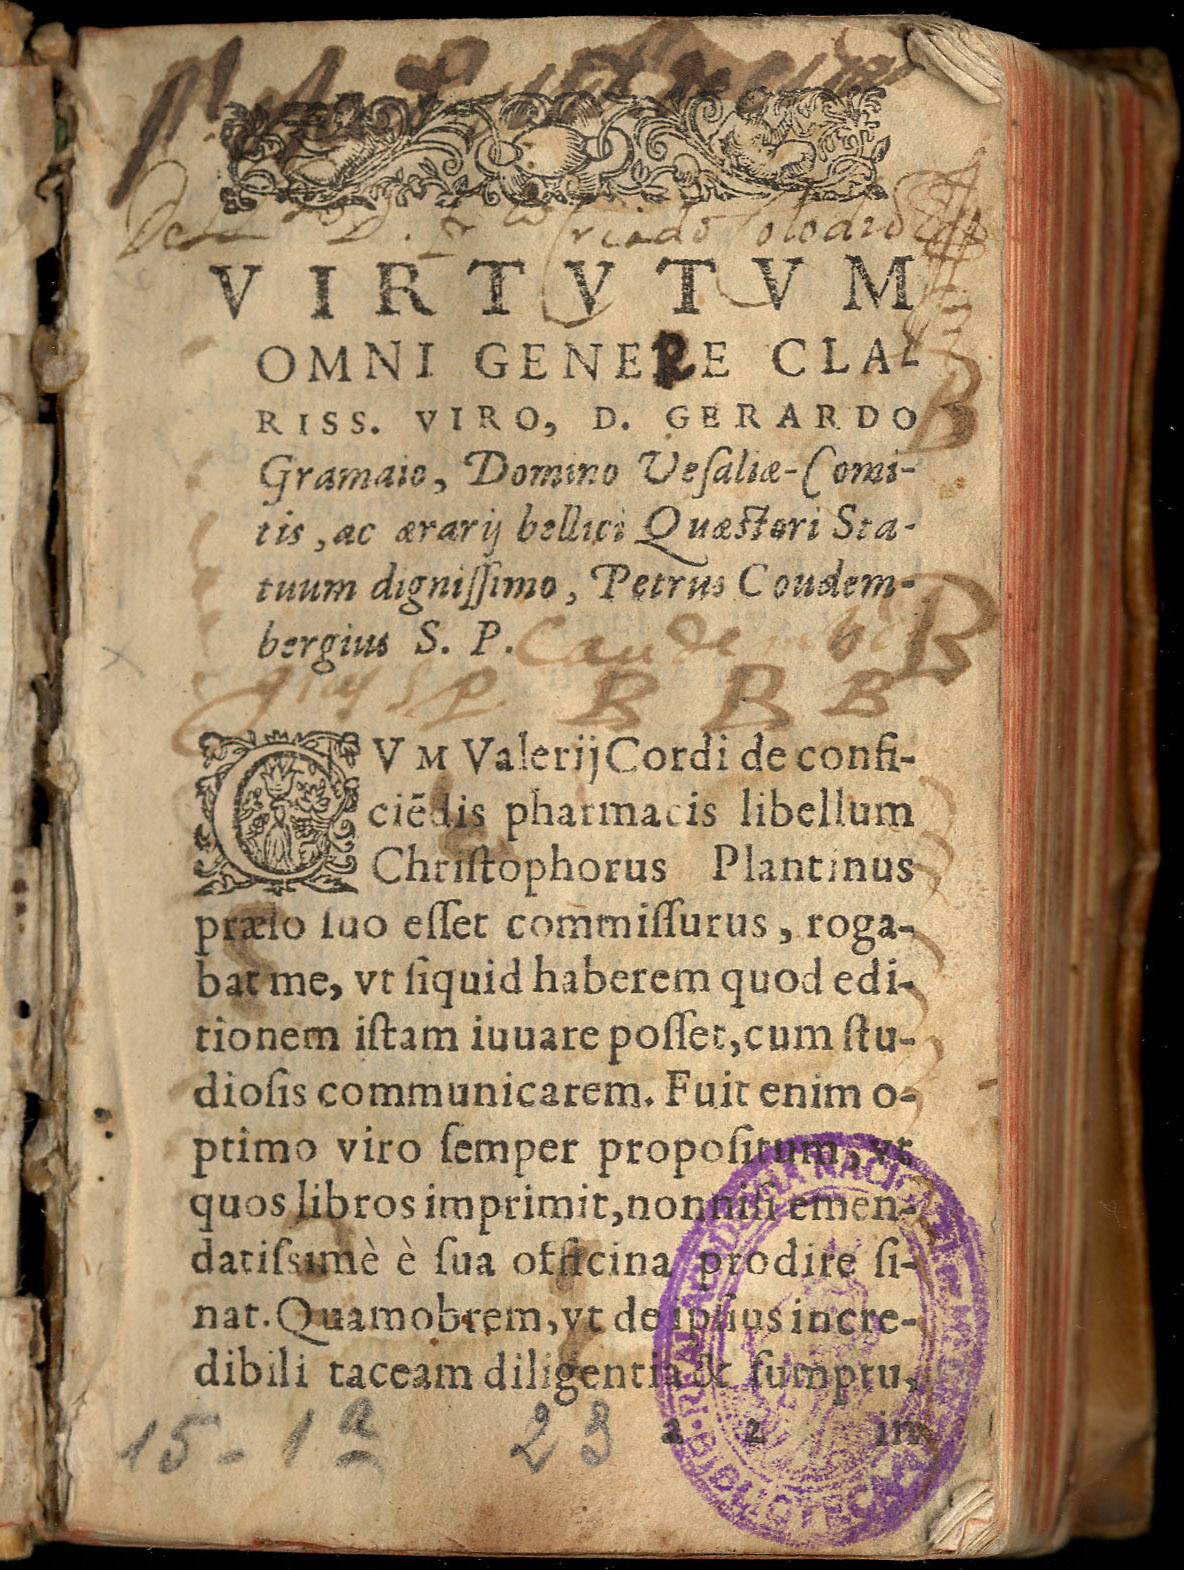 VIRTVTVM
OMNI GENERE CLA-
RISS. VIRO, D. GERARDO
Gramaio, Domino Veſaliæ-Comi-
tis, ac ærarij bellici Quæſtori Sta-
tuum digniſſimo, Petrus Coudem-
bergius S. P.
B
B
B B B
CVM Valerij Cordi de confi-
ciēdis pharmacis libellum
Chriſtophorus Plantinus
prælo ſuo eſſet commiſſurus, roga-
bat me, vt ſiquid haberem quod edi-
tionem iſtam iuuare poſſet, cum ſtu-
dioſis communicarem. Fuit enim o-
ptimo viro ſemper propoſitum, vt
quos libros imprimit, nonniſi emen-
datiſsimè è ſua officina prodire ſi-
nat. Quamobrem, vt de ipſius incre-
dibili taceam diligentia & ſumptu,
a 2 in
15-1a 23
BIBLIOTECA REAL ACADEMIA NACIONAL DE MEDICINA